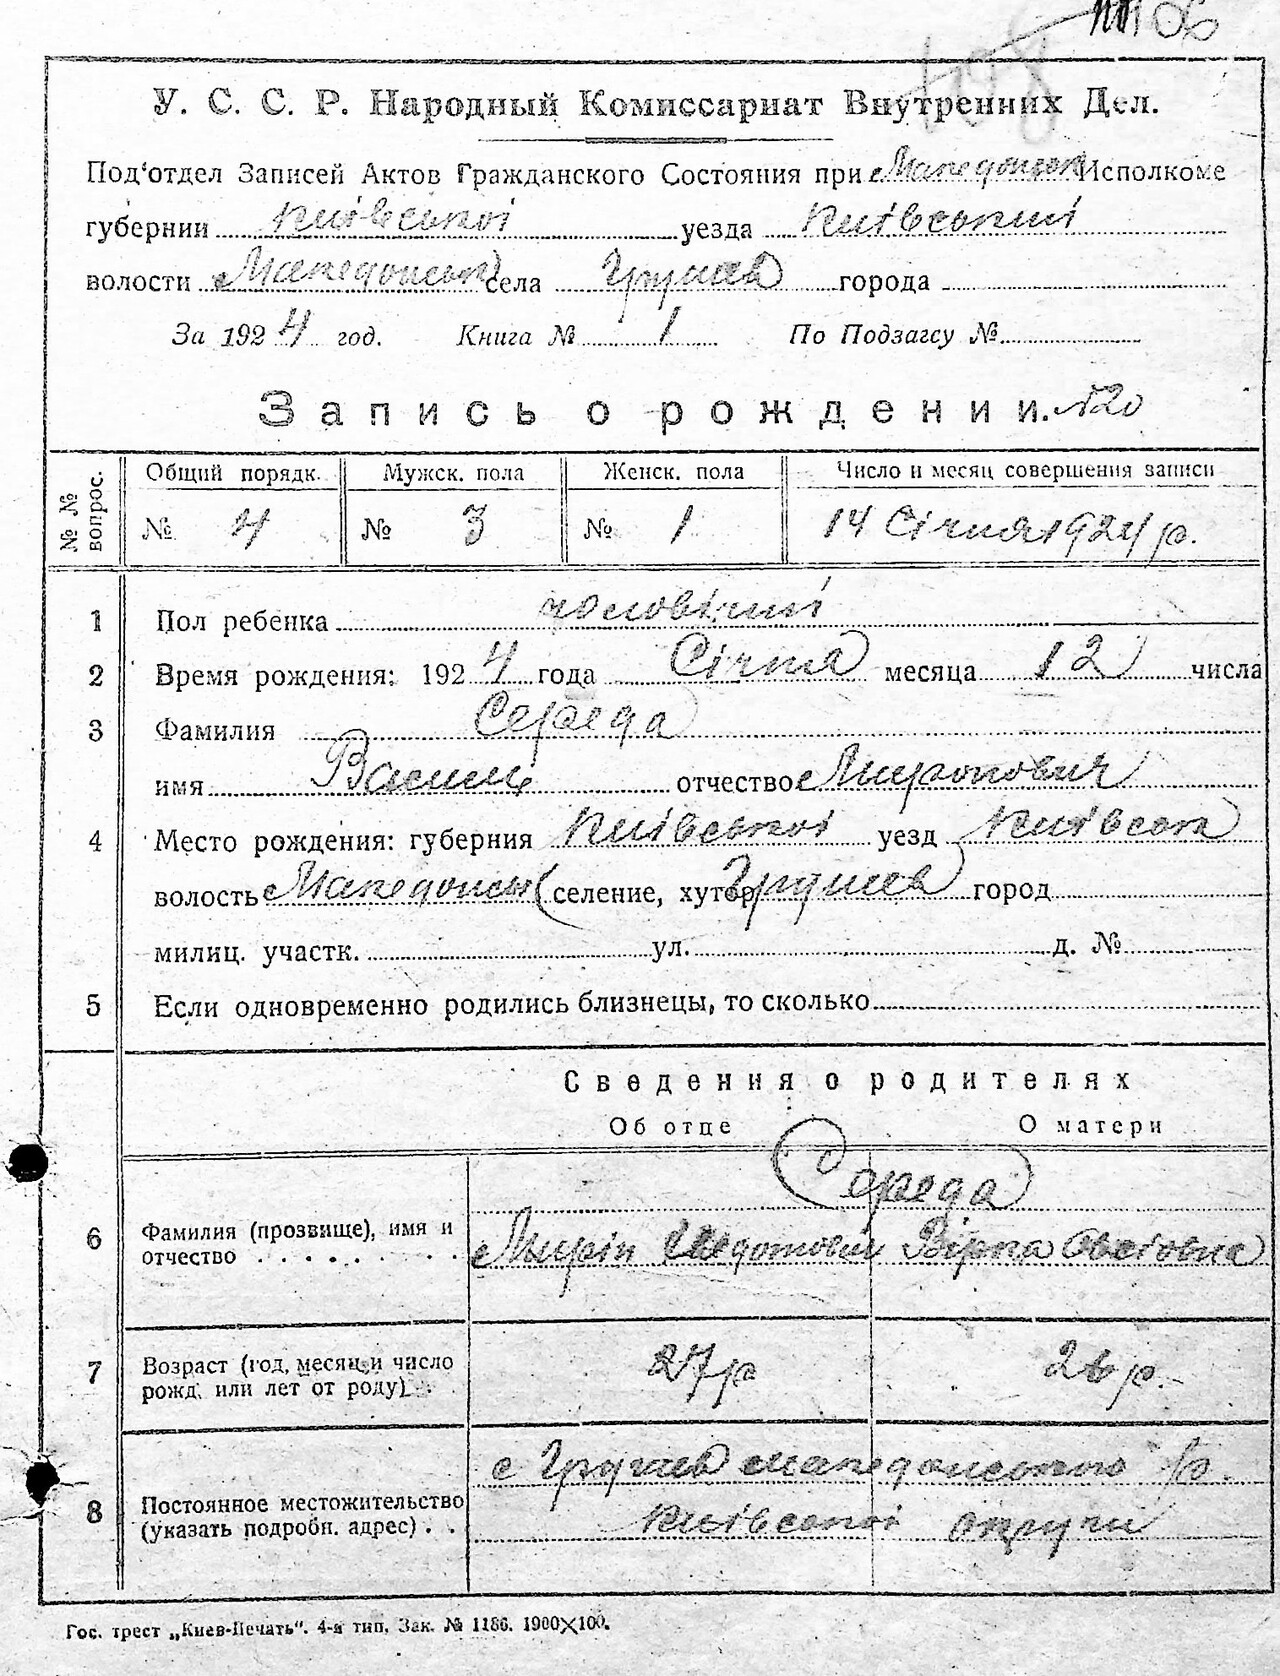 106
У. С. С. Р. Народный Комиссариат Внутренних Дел.
Под‘отдел Записей Актов Гражданского Состояния при Македонськ Исполкоме
губернии Київської уезда Київський
волости Македонськ села Грушев города
За 1924 год. Книга № 1 По Подзагсу №
Запись о рождении. №20
№ № вопрос. Общий порядк. Мужск. пола Женск. пола Число и месяц совершения записи
№ 4 № 3 № 1 14 Січня 1924 р.
1 Пол ребенка чоловічий
2 Время рождения: 1924 года Січня месяца 12 числа
3 Фамилия Середа
имя Василь отчество Миронович
4 Место рождения: губерния Київської уезд Київськ
волость Македонськ селение, хутор Грушев город
милиц. участк. ул. д. №
5 Если одновременно родились близнецы, то сколько
Сведения о родителях
Об отце О матери
Середа
6 Фамилия (прозвище), имя и отчество Мирін Федотович Вірка Овсіовна
7 Возраст (год, месяц и число рожд. или лет от роду) 27 р 26 р.
с Грушев Македонського р.
8 Постоянное местожительство (указать подробн. адрес) Київської округи
Гос. трест „Киев-Печать“. 4-я тип. Зак. № 1186. 1900×100.